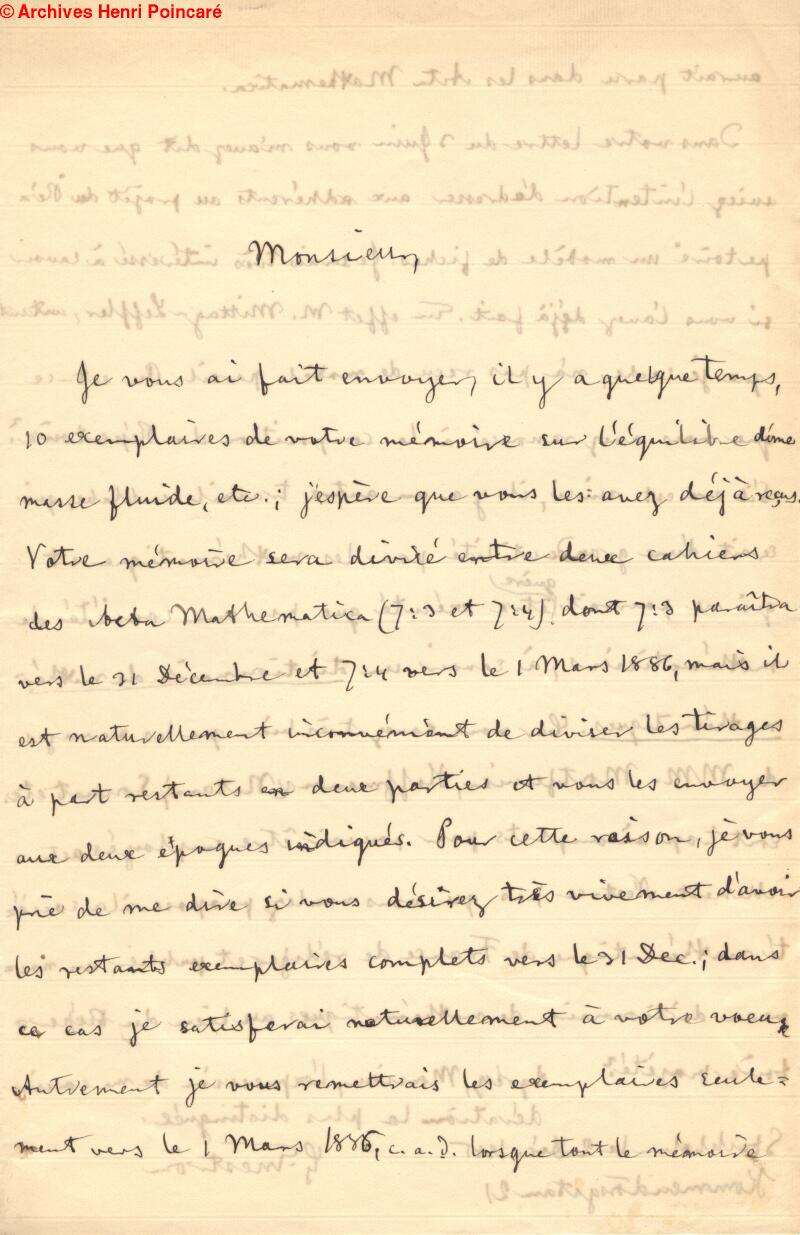 © Archives Henri Poincaré
Monsieur,
Je vous ai fait envoyer, il y a quelque temps,
10 exemplaires de votre mémoire sur l'équilibre d'une
masse fluide, etc.; j'espère que vous les avez déjà reçus.
Votre mémoire sera divisé entre deux cahiers
guère
des Acta Mathematica (7:3 et 7:4), dont 7:3 paraîtra
vers le 31 Décembre et 7:4 vers le 1 Mars 1886, mais il
est naturellement inconvénient de diviser les tirages
à part restants en deux parties et vous les envoyer
aux deux époques indiqués. Pour cette raison, je vous
prie de me dire si vous désirez très vivement d'avoir
les restants exemplaires complets vers le 31 Dec.; dans
ce cas je satisferai naturellement à votre voeux.
Autrement je vous remettrais les exemplaires seule=
ment vers le 1 Mars 1886, c.a.d. lorsque tout le mémoire